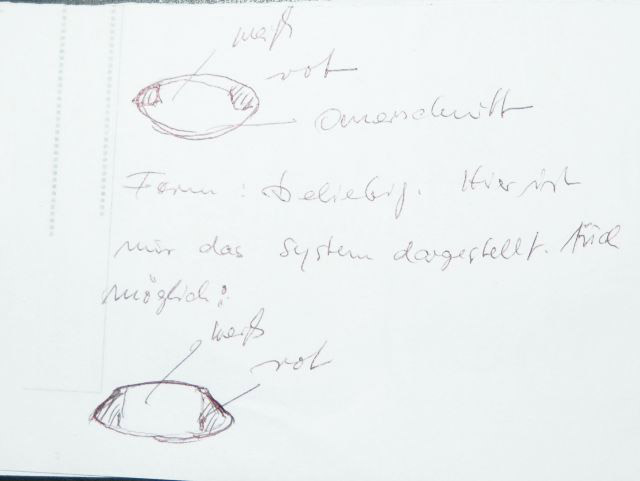 weiß
rot
Querschnitt
Form: beliebig. Hier ist
nur das System dargestellt. Auch
möglich:
weiß
rot